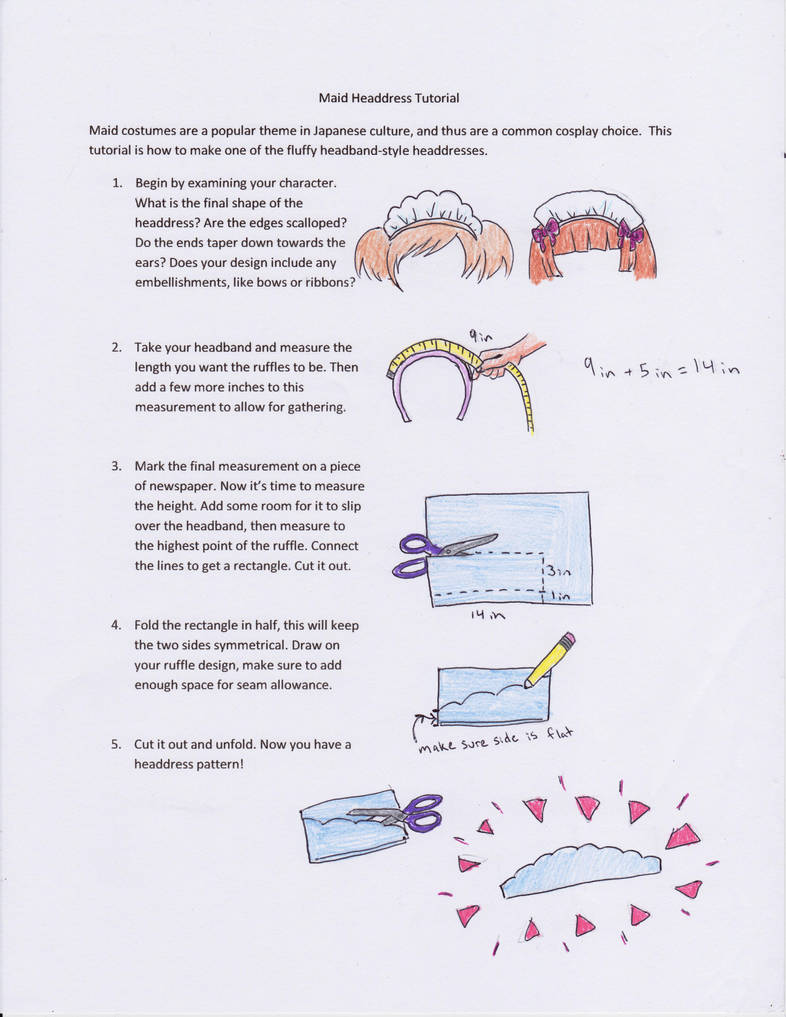 Maid Headdress Tutorial
Maid costumes are a popular theme in Japanese culture, and thus are a common cosplay choice.  This
tutorial is how to make one of the fluffy headband-style headdresses.
1. Begin by examining your character.
What is the final shape of the
headdress? Are the edges scalloped?
Do the ends taper down towards the
ears? Does your design include any
embellishments, like bows or ribbons?
2. Take your headband and measure the
length you want the ruffles to be. Then
add a few more inches to this
measurement to allow for gathering.
9in
9in + 5in = 14in
3. Mark the final measurement on a piece
of newspaper. Now it's time to measure
the height. Add some room for it to slip
over the headband, then measure to
the highest point of the ruffle. Connect
the lines to get a rectangle. Cut it out.
3in
1in
14in
4. Fold the rectangle in half, this will keep
the two sides symmetrical. Draw on
your ruffle design, make sure to add
enough space for seam allowance.
make sure side is flat
5. Cut it out and unfold. Now you have a
headdress pattern!